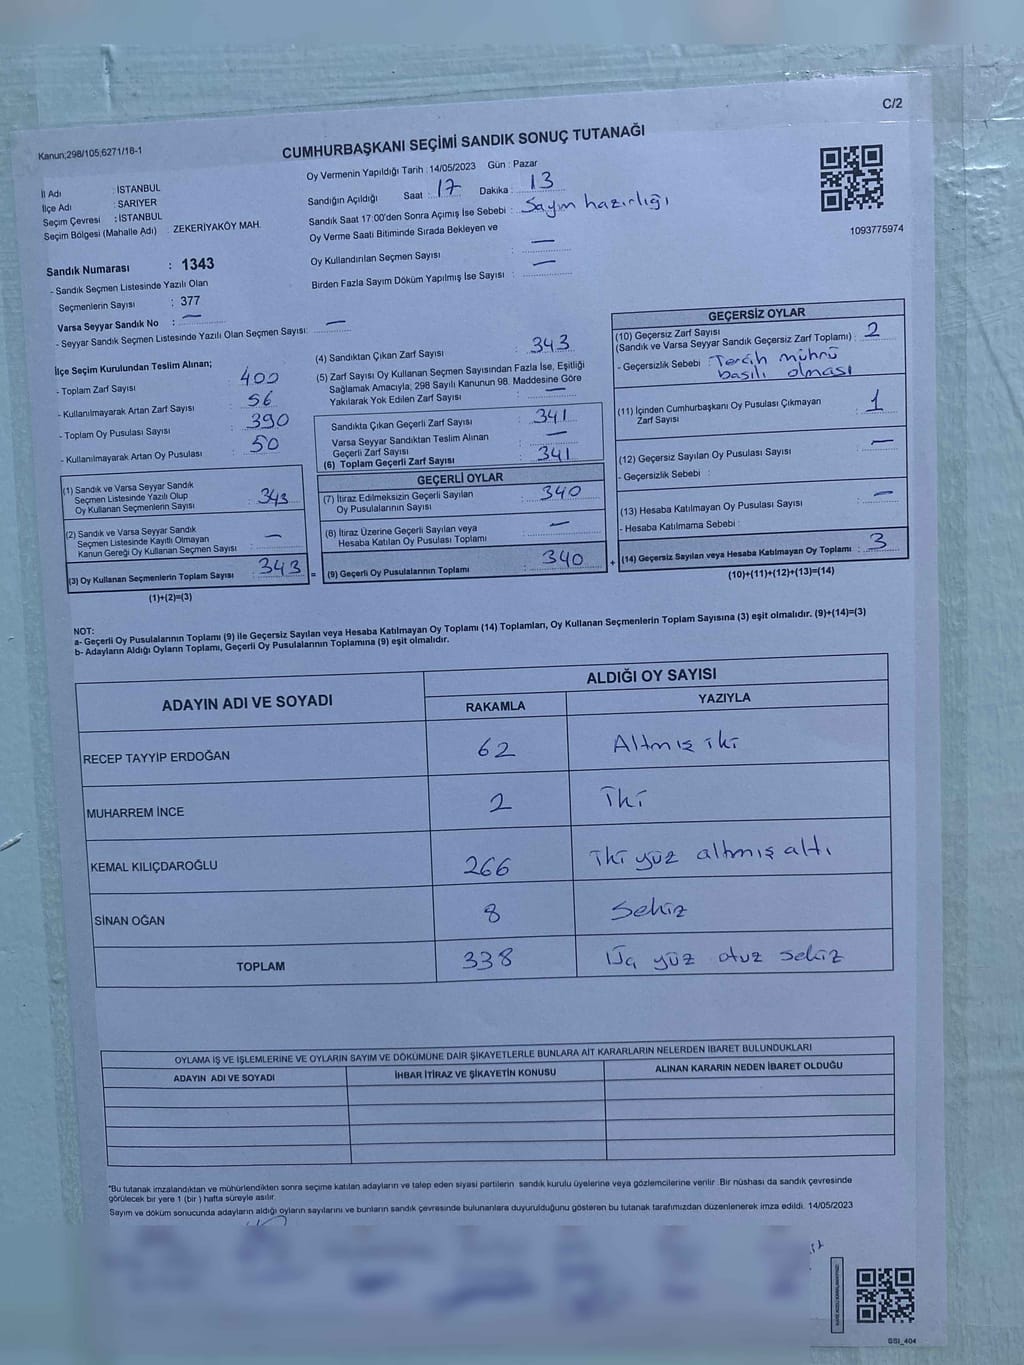 C/2
Kanun;298/105;6271/18-1
CUMHURBAŞKANI SEÇİMİ SANDIK SONUÇ TUTANAĞI
İl Adı : İSTANBUL
İlçe Adı : SARIYER
Seçim Çevresi : İSTANBUL
Seçim Bölgesi (Mahalle Adı) : ZEKERİYAKÖY MAH.
Oy Vermenin Yapıldığı Tarih : 14/05/2023 Gün : Pazar
Sandığın Açıldığı Saat : 17 Dakika : 13
Sandık Saat 17:00'den Sonra Açımış İse Sebebi : Sayım hazırlığı
Oy Verme Saati Bitiminde Sırada Bekleyen ve
Oy Kullandırılan Seçmen Sayısı : —
Birden Fazla Sayım Döküm Yapılmış İse Sayısı : —
1093775974
Sandık Numarası : 1343
- Sandık Seçmen Listesinde Yazılı Olan
Seçmenlerin Sayısı : 377
Varsa Seyyar Sandık No : —
- Seyyar Sandık Seçmen Listesinde Yazılı Olan Seçmen Sayısı: —
İlçe Seçim Kurulundan Teslim Alınan;
- Toplam Zarf Sayısı : 400
- Kullanılmayarak Artan Zarf Sayısı : 56
- Toplam Oy Pusulası Sayısı : 390
- Kullanılmayarak Artan Oy Pusulası : 50
(1) Sandık ve Varsa Seyyar Sandık
Seçmen Listesinde Yazılı Olup
Oy Kullanan Seçmenlerin Sayısı : 343
(2) Sandık ve Varsa Seyyar Sandık
Seçmen Listesinde Kayıtlı Olmayan
Kanun Gereği Oy Kullanan Seçmen Sayısı : —
(3) Oy Kullanan Seçmenlerin Toplam Sayısı : 343
(1)+(2)=(3)
(4) Sandıktan Çıkan Zarf Sayısı : 343
(5) Zarf Sayısı Oy Kullanan Seçmen Sayısından Fazla İse, Eşitliği
Sağlamak Amacıyla; 298 Sayılı Kanunun 98. Maddesine Göre
Yakılarak Yok Edilen Zarf Sayısı : —
Sandıkta Çıkan Geçerli Zarf Sayısı : 341
Varsa Seyyar Sandıktan Teslim Alınan
Geçerli Zarf Sayısı : —
(6) Toplam Geçerli Zarf Sayısı : 341
GEÇERLİ OYLAR
(7) İtiraz Edilmeksizin Geçerli Sayılan
Oy Pusulalarının Sayısı : 340
(8) İtiraz Üzerine Geçerli Sayılan veya
Hesaba Katılan Oy Pusulası Toplamı : —
= (9) Geçerli Oy Pusulalarının Toplamı : 340
GEÇERSİZ OYLAR
(10) Geçersiz Zarf Sayısı
(Sandık ve Varsa Seyyar Sandık Geçersiz Zarf Toplamı) : 2
- Geçersizlik Sebebi : Tercih mührü
basılı olması
(11) İçinden Cumhurbaşkanı Oy Pusulası Çıkmayan
Zarf Sayısı : 1
(12) Geçersiz Sayılan Oy Pusulası Sayısı : —
- Geçersizlik Sebebi :
(13) Hesaba Katılmayan Oy Pusulası Sayısı : —
- Hesaba Katılmama Sebebi :
+ (14) Geçersiz Sayılan veya Hesaba Katılmayan Oy Toplamı : 3
(10)+(11)+(12)+(13)=(14)
NOT:
a- Geçerli Oy Pusulalarının Toplamı (9) ile Geçersiz Sayılan veya Hesaba Katılmayan Oy Toplamı (14) Toplamları, Oy Kullanan Seçmenlerin Toplam Sayısına (3) eşit olmalıdır. (9)+(14)=(3)
b- Adayların Aldığı Oyların Toplamı, Geçerli Oy Pusulalarının Toplamına (9) eşit olmalıdır.
ADAYIN ADI VE SOYADI
ALDIĞI OY SAYISI
RAKAMLA YAZIYLA
RECEP TAYYİP ERDOĞAN 62 Altmış iki
MUHARREM İNCE 2 iki
KEMAL KILIÇDAROĞLU 266 iki yüz altmış altı
SİNAN OĞAN 8 Sekiz
TOPLAM 338 Üç yüz otuz sekiz
OYLAMA İŞ VE İŞLEMLERİNE VE OYLARIN SAYIM VE DÖKÜMÜNE DAİR ŞİKAYETLERLE BUNLARA AİT KARARLARIN NELERDEN İBARET BULUNDUKLARI
ADAYIN ADI VE SOYADI İHBAR İTİRAZ VE ŞİKAYETİN KONUSU ALINAN KARARIN NEDEN İBARET OLDUĞU
*Bu tutanak imzalandıktan ve mühürlendikten sonra seçime katılan adayların ve talep eden siyasi partilerin sandık kurulu üyelerine veya gözlemcilerine verilir. Bir nüshası da sandık çevresinde
görülecek bir yere 1 (bir) hafta süreyle asılır.
Sayım ve döküm sonucunda adayların aldığı oyların sayılarını ve bunların sandık çevresinde bulunanlara duyurulduğunu gösteren bu tutanak tarafımızdan düzenlenerek imza edildi. 14/05/2023
GSI_404